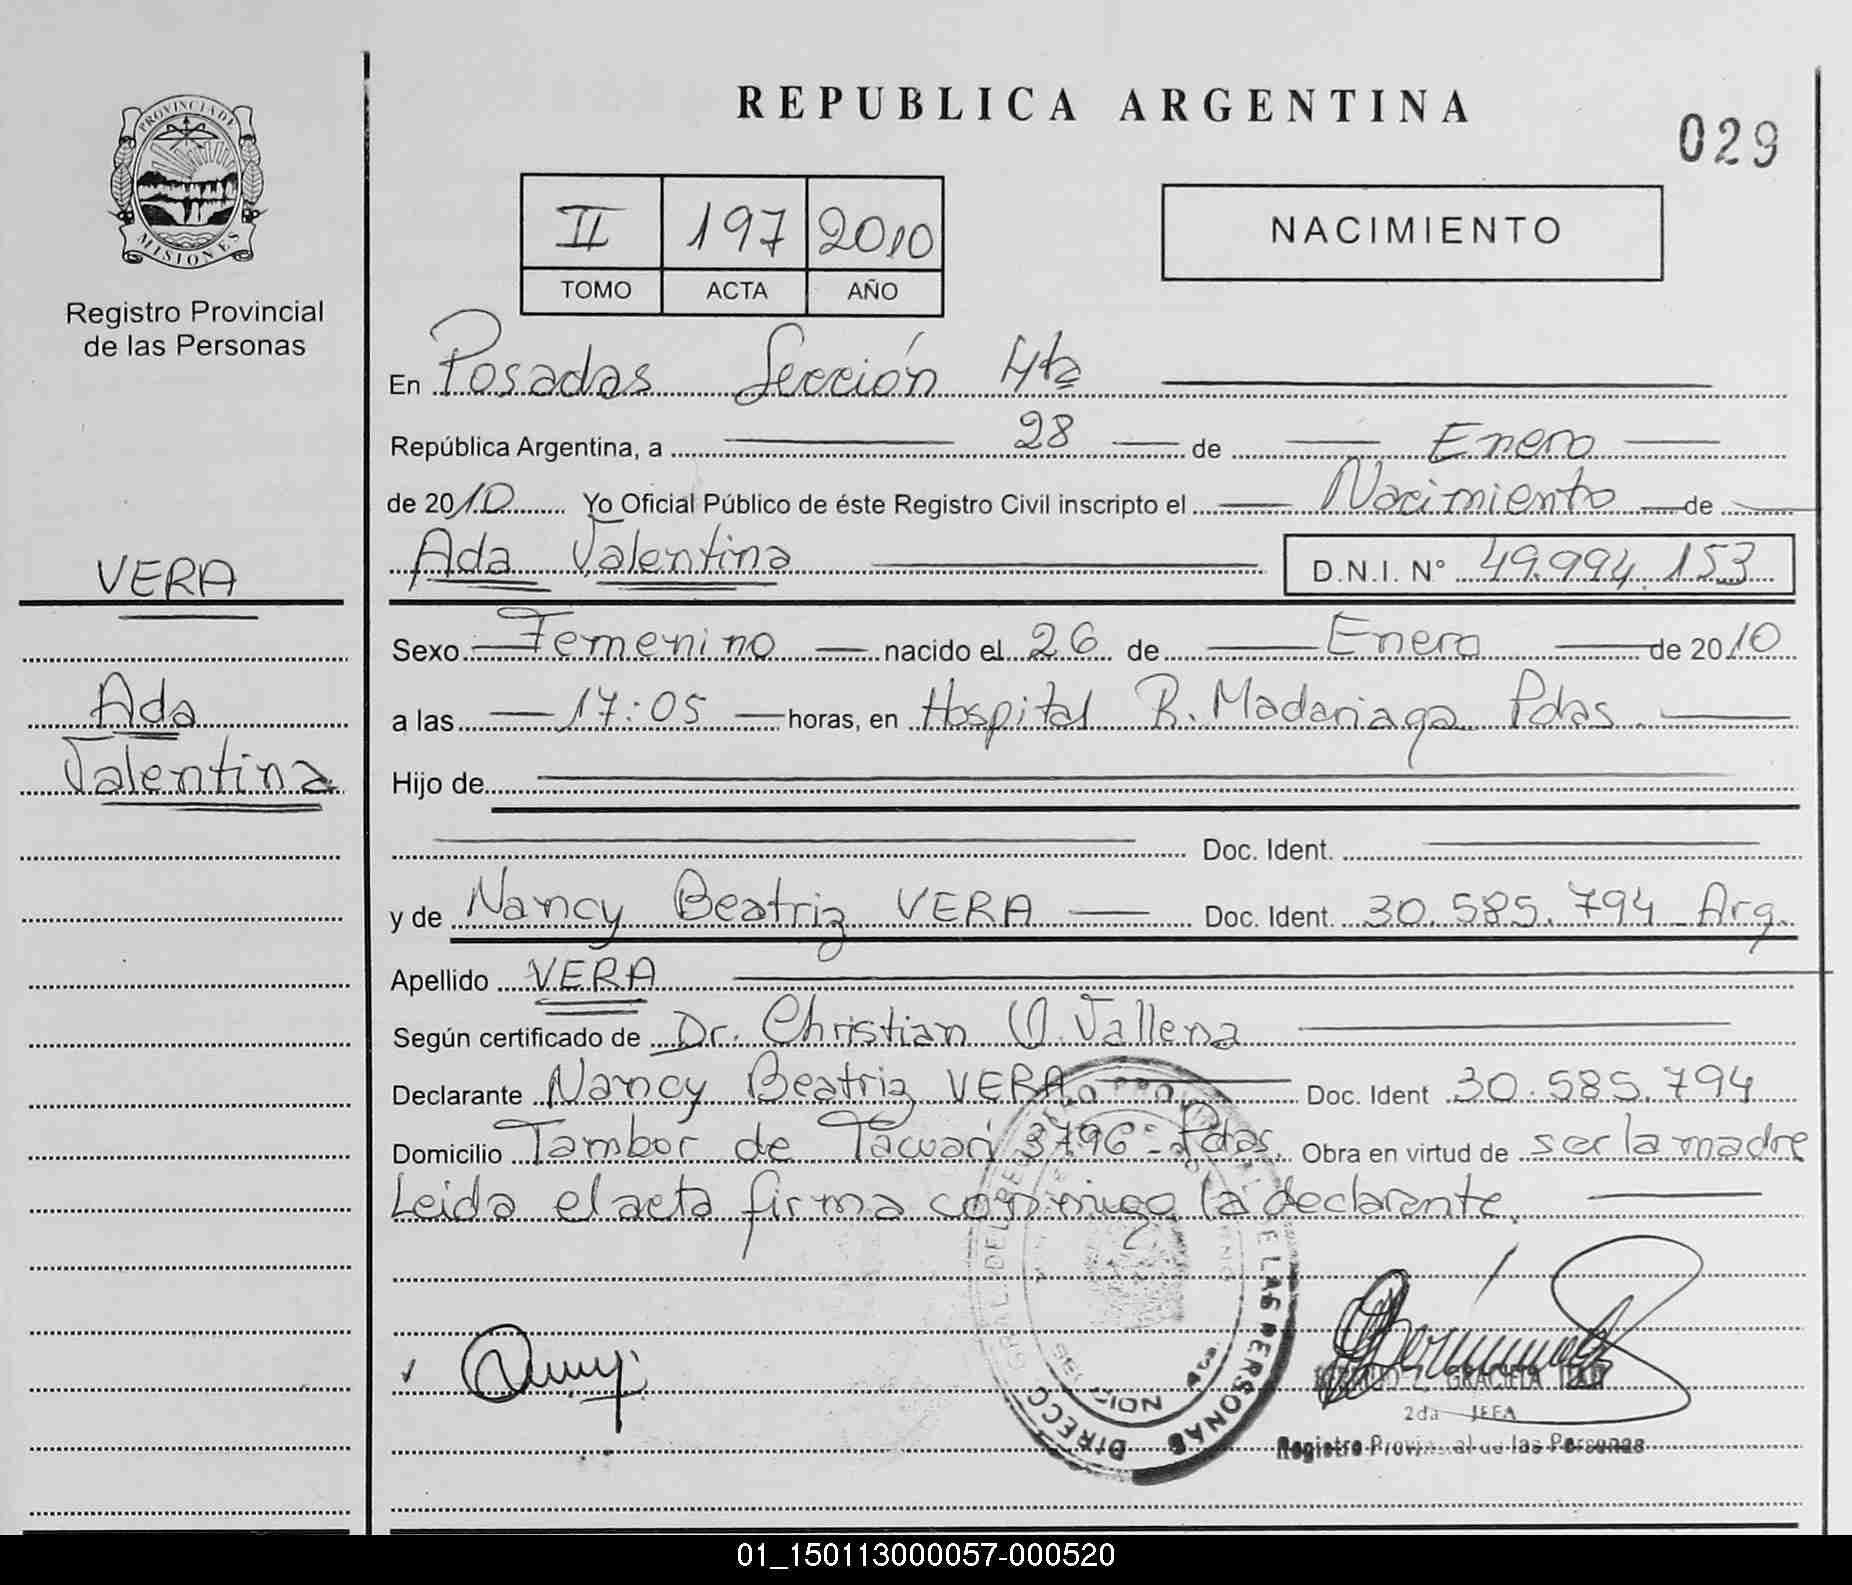 REPUBLICA ARGENTINA
029
PROVINCIA DE MISIONES
Registro Provincial
de las Personas
II 197 2010
TOMO ACTA AÑO
NACIMIENTO
En Posadas Sección 4ta
República Argentina, a 28 de Enero
de 2010 Yo Oficial Público de éste Registro Civil inscripto el Nacimiento de
Ada Valentina D.N.I. N° 49.994.153
VERA
Ada
Valentina
Sexo Femenino nacido el 26 de Enero de 2010
a las 17:05 horas, en Hospital R. Madariaga Pdas.
Hijo de
Doc. Ident.
y de Nancy Beatriz VERA Doc. Ident. 30.585.794 Arg.
Apellido VERA
Según certificado de Dr. Christian O. Vallena
Declarante Nancy Beatriz VERA Doc. Ident 30.585.794
Domicilio Tambor de Tacuarí 3796 - Pdas. Obra en virtud de ser la madre
Leida el acta firma conmigo la declarante.
SECCION 4ta.
GRACIELA
2da JEFA
Registro Provincial de las Personas
01_150113000057-000520